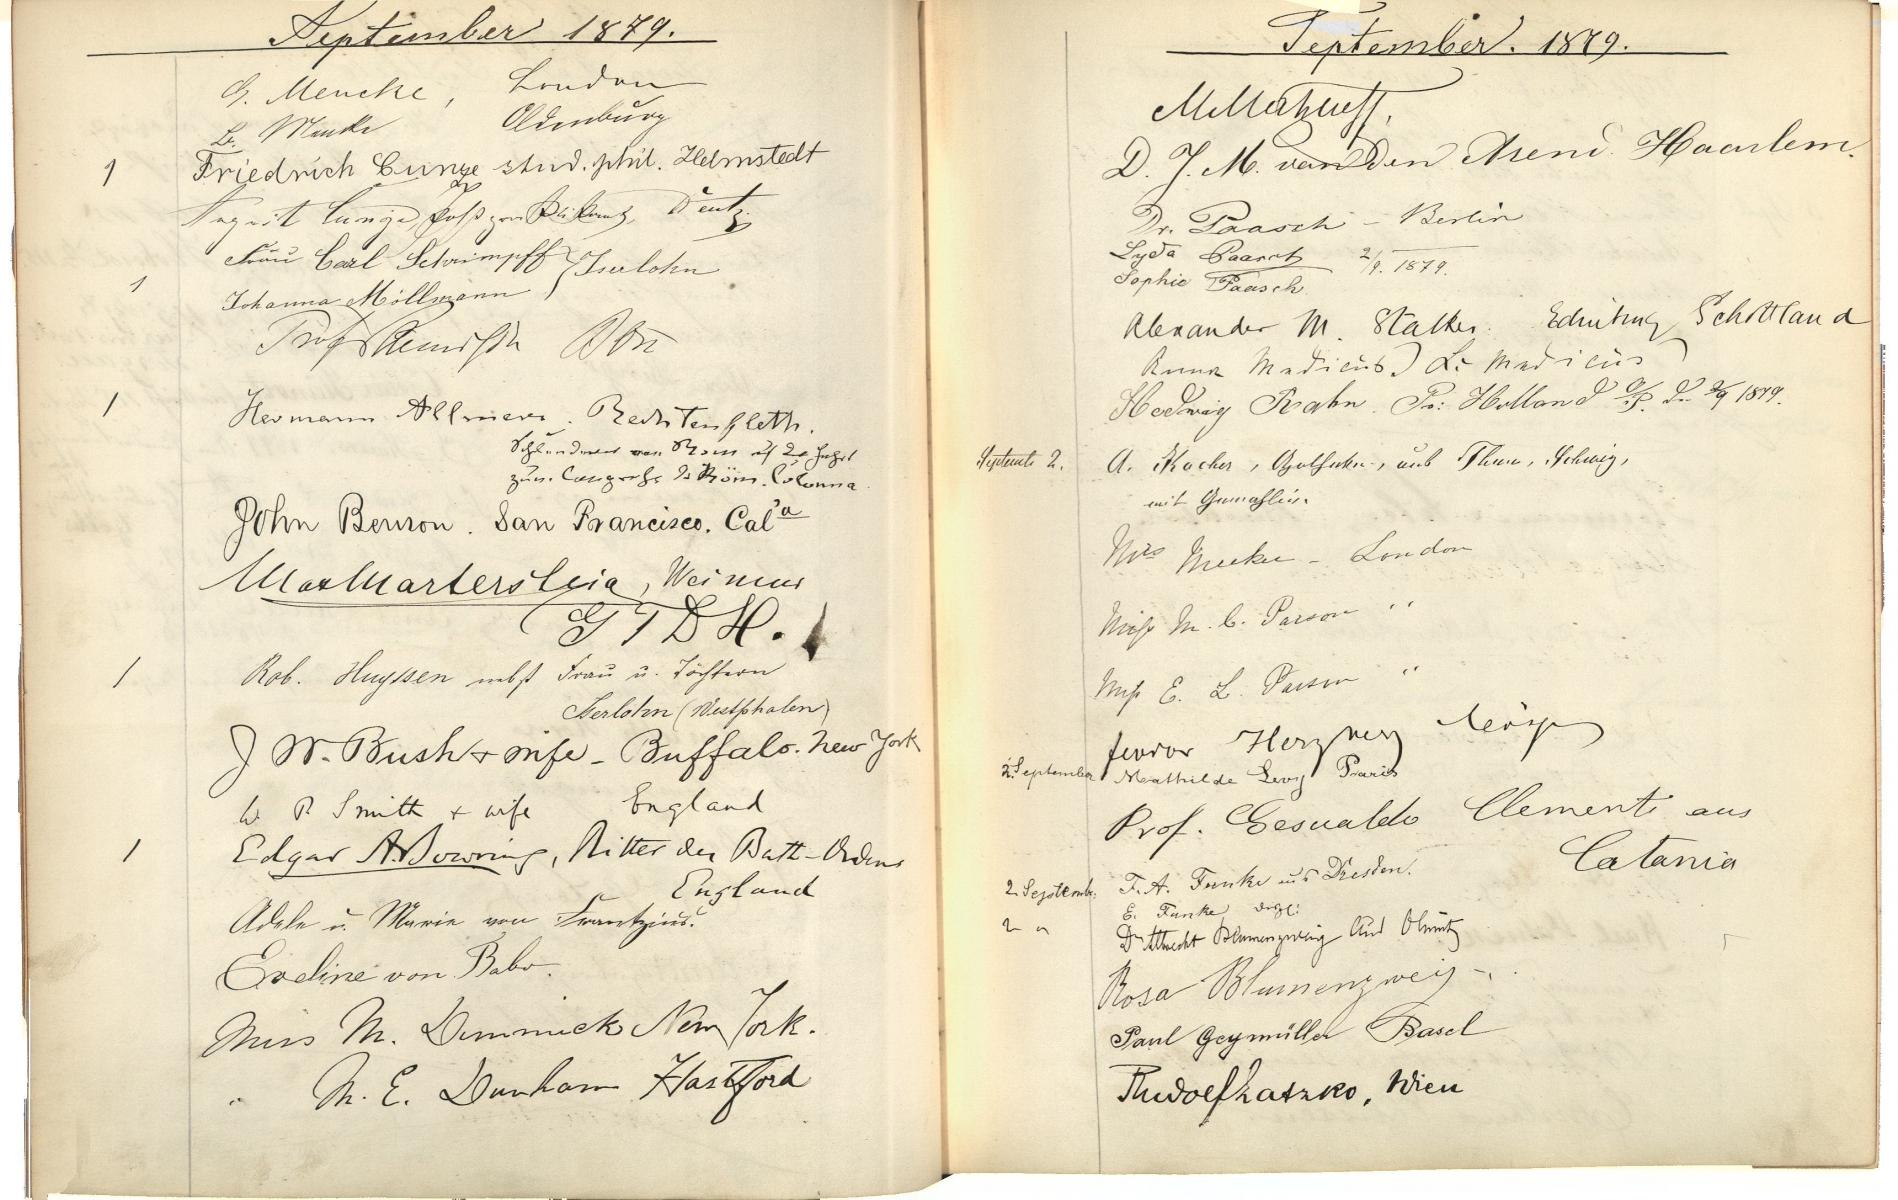 September 1879.
G. Mencke, London
L. Menke Oldenburg
1 Friedrich Cunze stud. phil. Helmstedt
August Cunze, Deutz
Frau Carl Schrimpff } Iserlohn
1 Johanna Möllmann
Prof
1 Hermann Allmers. Rechtenfleth.
von Rom auf der
zum Congresse d. Röm. Colonna
John Benson. San Francisco. Cal'a
Max Martersteig, Weimar
G T D H.
1 Rob. Huyssen nebst Frau u. Töchtern
Iserlohn (Westphalen)
J W. Bush & wife - Buffalo. New York
W P Smith + wife England
1 Edgar A. Bowring, Ritter des Bath-Ordens
England
Adele u. Marie von Frantzius.
Eveline von Babo.
Miss M. Dimmick New York.
" M. E. Dunham Hartford
September. 1879.
D. J. M. van den Arend. Haarlem.
Dr. Paasch - Berlin
Lyda Paasch 2/9. 1879.
Sophie Paasch
Alexander M. Stalker. Edinburg Schottland
Anna Medicus L. Medicus
Hedwig Rahn. Pr: Holland d. 2/9 1879.
September 2. A. Kocher, Apotheker, aus Thun, Schweiz,
mit Gemahlin.
Mrs Meeker - London
Miss M. C. Parson "
Miss E. L. Parson "
Feodor Herzberg
2. September Mathilde Levy Paris
Prof. Gesualdo Clementi aus
Catania
2 September F. A. Funke aus Dresden.
E. Funke, dsgl:
2 " Dr Albrecht Blumenzweig aus Olmütz
Rosa Blumenzweig
Paul Geymüller Basel
Rudolf Latzko, Wien